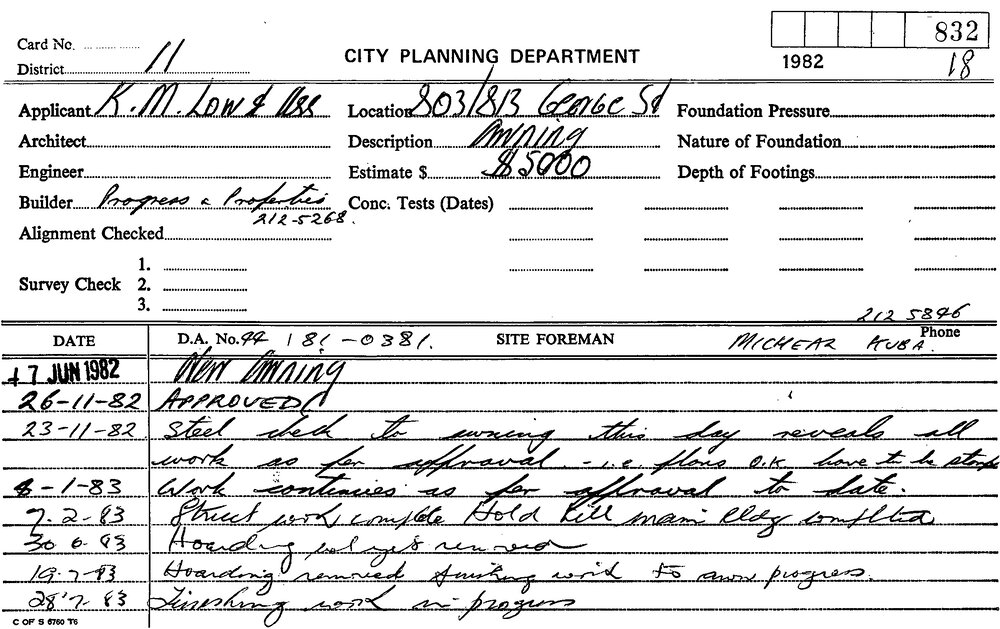 832
Card No.
1982 18
District 11
CITY PLANNING DEPARTMENT
Applicant K.M. Low & Ass Location 803/813 George St Foundation Pressure
Architect Description Awning Nature of Foundation
Engineer Estimate $ $5000 Depth of Footings
Builder Progress & Properties Conc. Tests (Dates)
212-5268.
Alignment Checked
1.
Survey Check 2.
3.
212 5846
DATE D.A. No. 44 181-0381. SITE FOREMAN MICHEAL KUBA. Phone
17 JUN 1982 New Awning
26-11-82 APPROVED
23-11-82 Steel check to awning this day reveals all
work as per approval. - i.e. plans O.K. have to be
8-1-83 Work continues as per approval to date.
7.2-83 Street work complete Hold till main bldg completed
30 6 83 Hoarding not yet removed
19-7-83 Hoarding removed finishing work to awn progress.
28-7-83 Finishing work in progress
C OF S 6760 T6